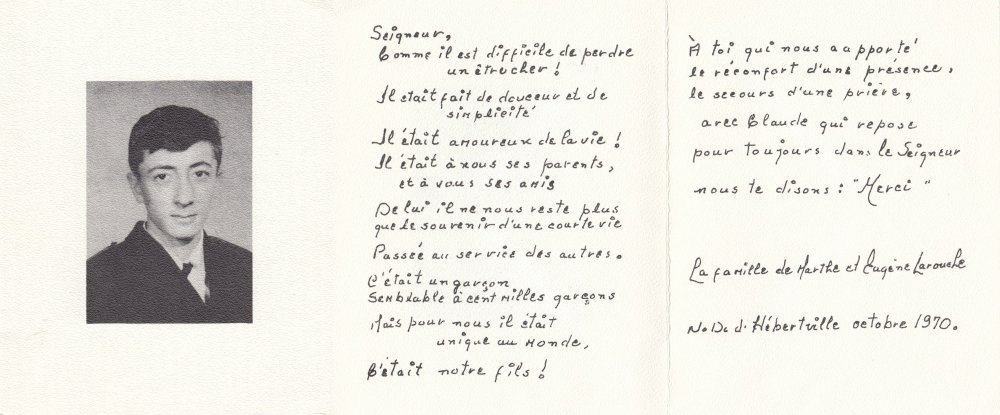 Seigneur,
Comme il est difficile de perdre
un être cher !
Il était fait de douceur et de
simplicité
Il était amoureux de la vie !
Il était à nous ses parents,
et à vous ses amis
De lui il ne nous reste plus
que le souvenir d'une courte vie
Passée au service des autres.
C'était un garçon
Semblable à cent milles garçons
Mais pour nous il était
unique au monde,
C'était notre fils !
À toi qui nous a apporté
le réconfort d'une présence,
le secours d'une prière,
avec Claude qui repose
pour toujours dans le Seigneur
nous te disons : "Merci"
La famille de Marthe et Eugène Larouche
N. D. d'Hébertville octobre 1970.